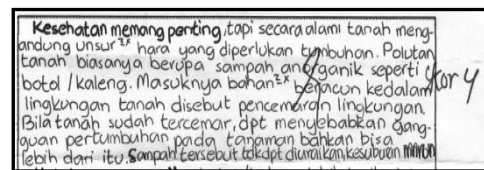 Kesehatan memang penting, tapi secara alami tanah meng-
andung unsur²ˣ hara yang diperlukan tumbuhan. Polutan
tanah biasanya berupa sampah anorganik seperti
botol / kaleng. Masuknya bahan²ˣ beracun kedalam
lingkungan tanah disebut pencemaran lingkungan.
Bila tanah sudah tercemar, dpt menyebabkan gang-
guan pertumbuhan pada tanaman bahkan bisa
lebih dari itu. Sampah tersebut tdkdpt diuraikan, kesuburan
skor 4